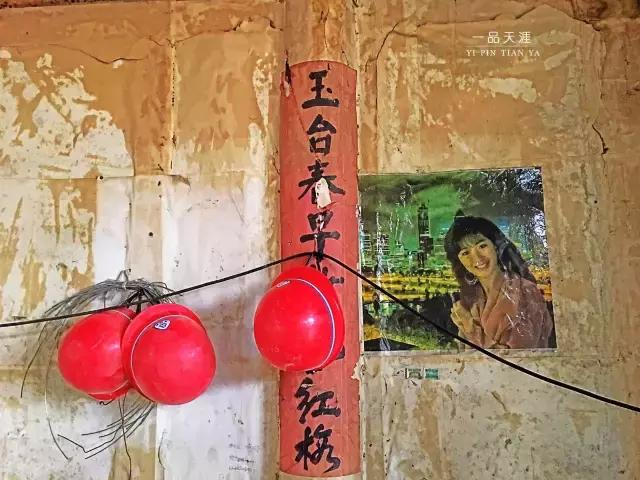 一品天涯
YI PIN TIAN YA
玉台春早
红格